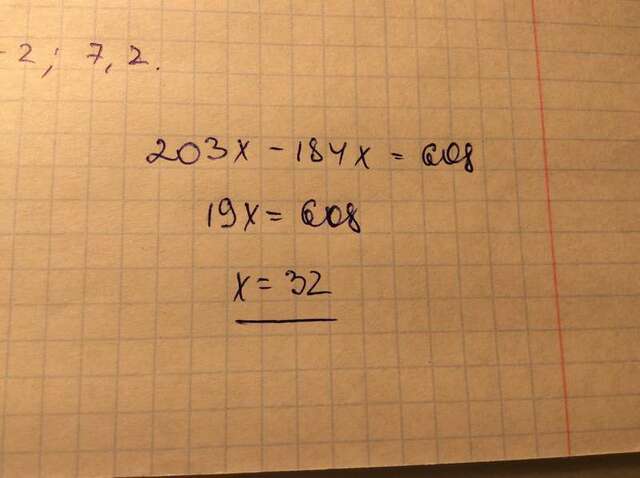 -2; 7,2.
203x - 184x = 608
19x = 608
x = 32